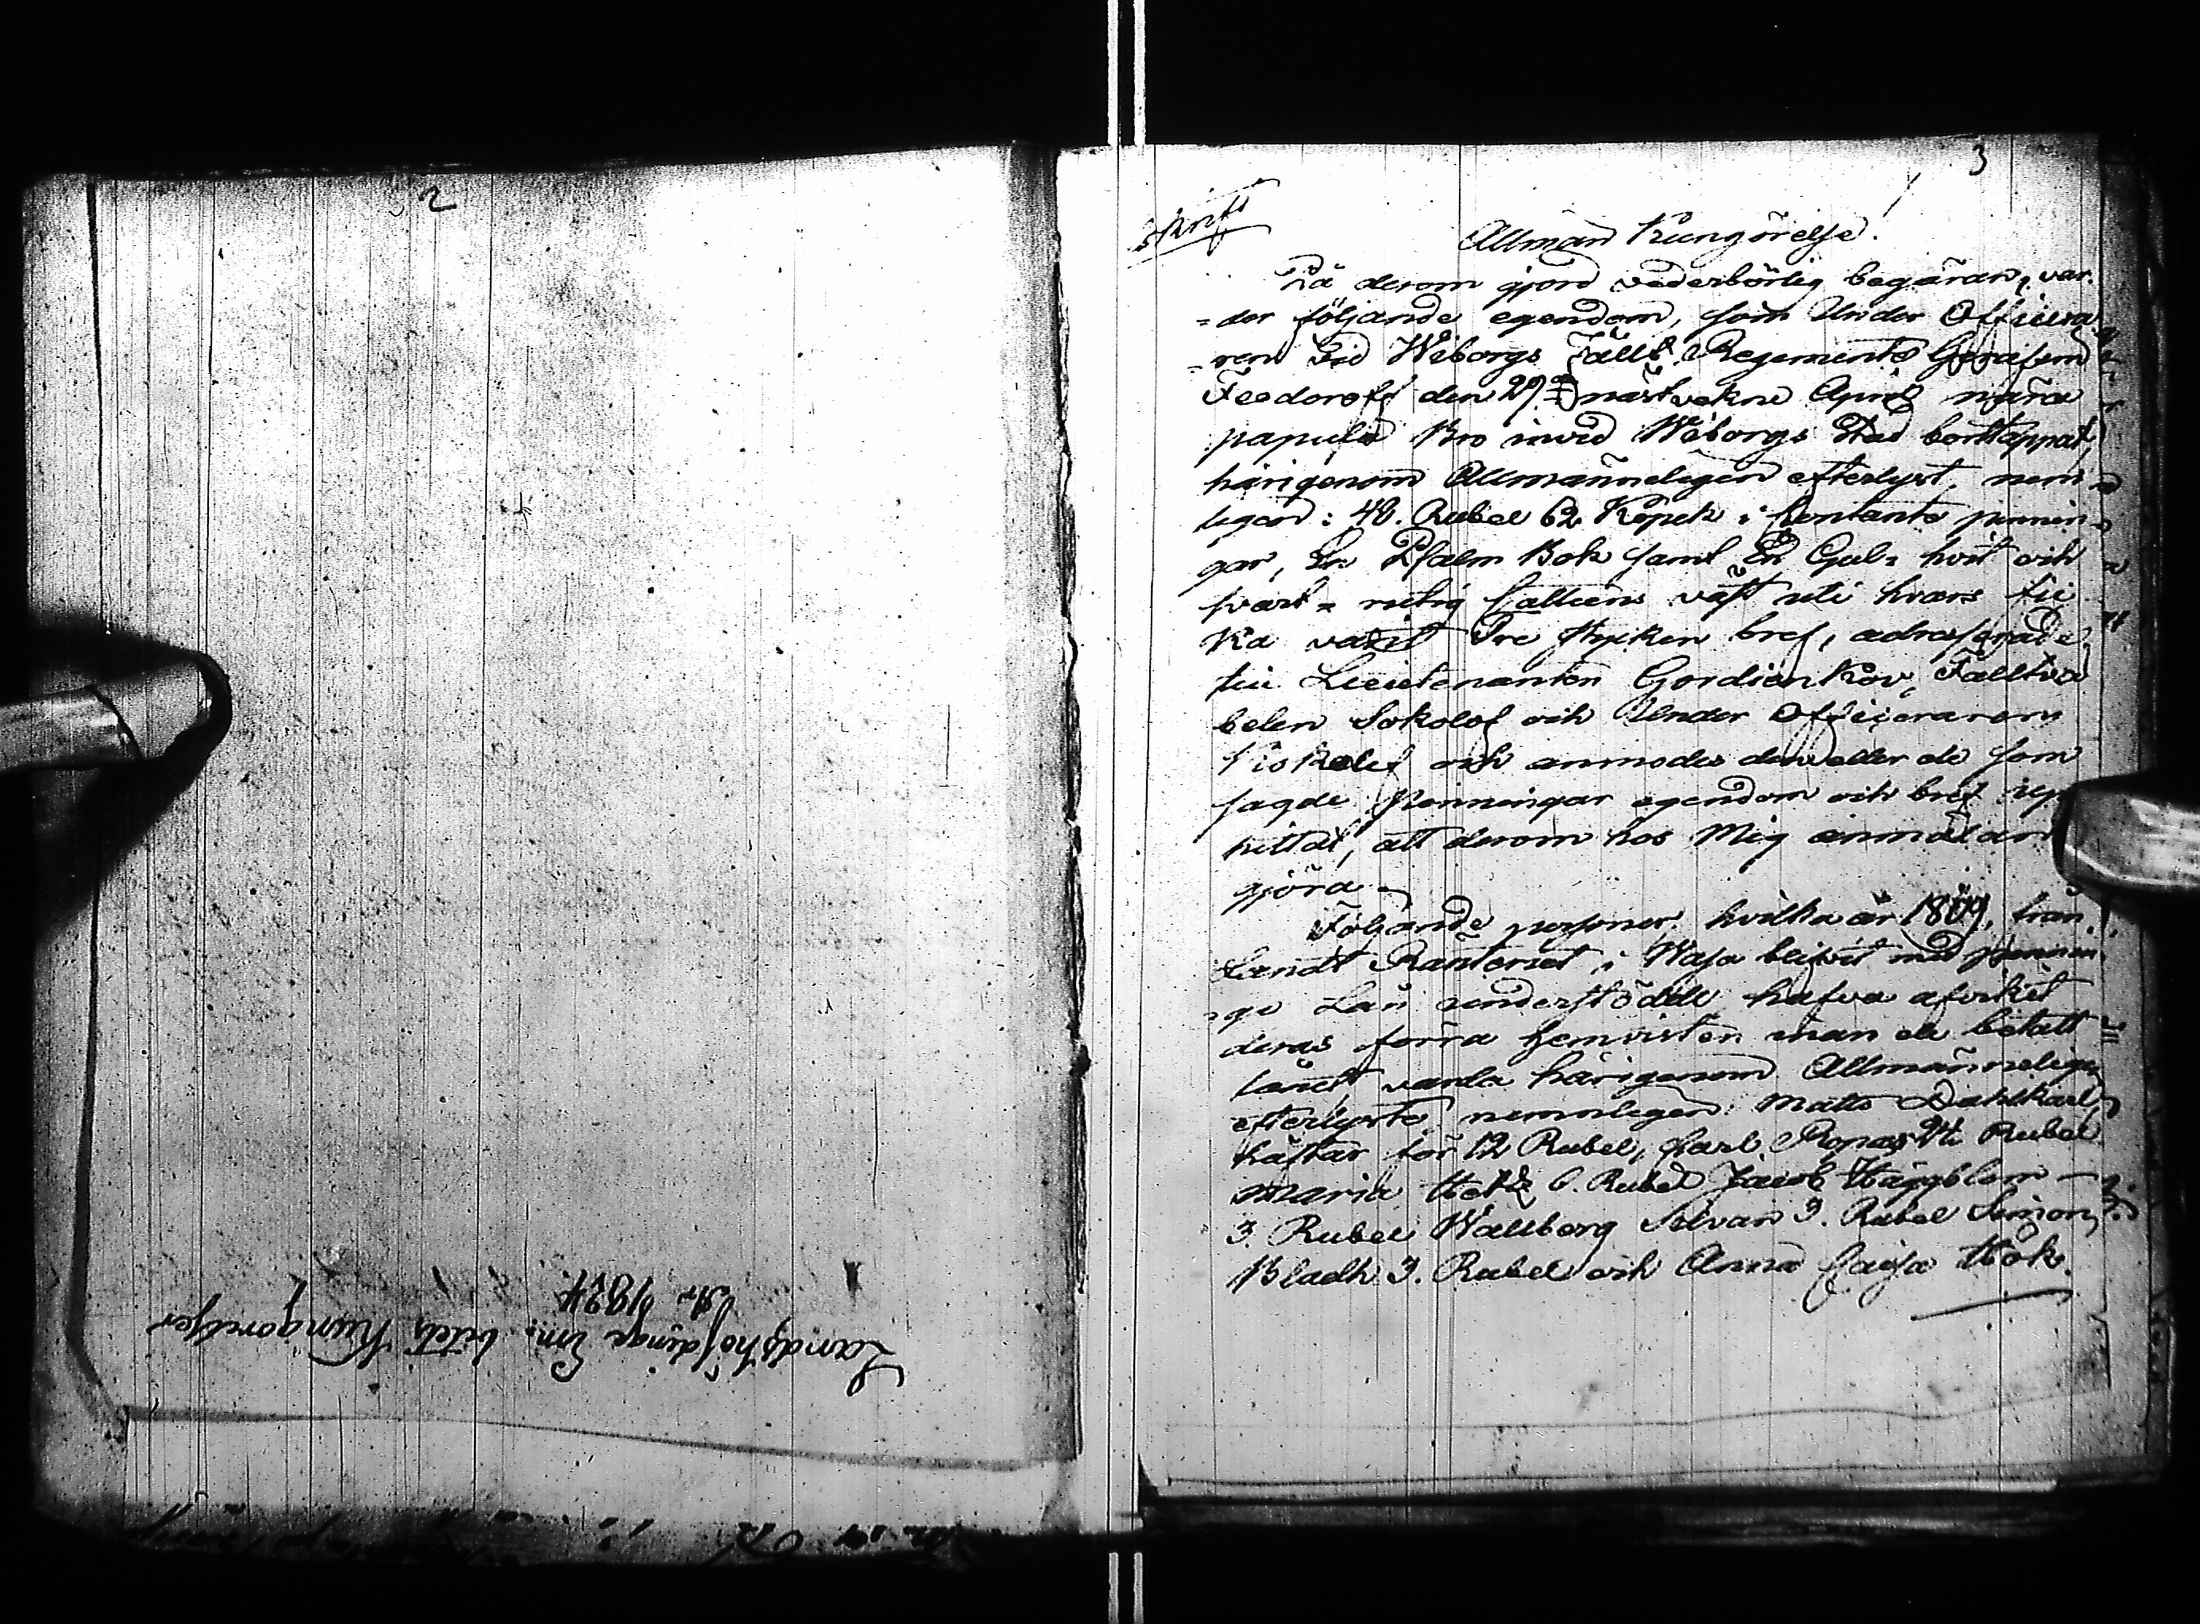 2
Landshöfdinge Em: betets Kungörelser
År 1824
3
Allmän Kungörelse!
På derom gjord vederbörlig begäran, var-
=der följande egendom, som Under Officera
=ren vid Wiborgs Fällt Regemente Gerasim
Feodoroff den 29de nästvekne April nära
papula Bro invid Wiborgs Stad borttappat,
härigenom Allmänneligen efterlyst, nem
ligen: 40. Rubel 62 Kopek i Contante pennin=
gar, En Psalm Bok samt En Gul= hvit och
svart= rutig Cattuns väst uti hvars fic
ka varit Tre stycken bref, adresserade
till Lieutenanten Gordienkov, Fälltvä
belen Sokolof och Under Officeraren
och anmodes den eller de som
sagde Penningar egendom och bref upp
hittat, att derom hos Mig anmälan
gjöra
Följande personer, hvilka år 1809, från
Landt Ränteriet i Wasa blifvit med pennin=
=ge Lån understödde hafva afvikit
deras förra hemvisten innan de betalt
lånet, varda härigenom Allmänneligen
efterlyste nemnligen: Matts Dahlkarl
häftar för 12 Rubel, Carl Rubel
Maria 6. Rubel Jacob Häggblom -
3. Rubel Wallborg Silvan 3. Rubel Simon
Bladh 3. Rubel och Anna Cajsa Höök.